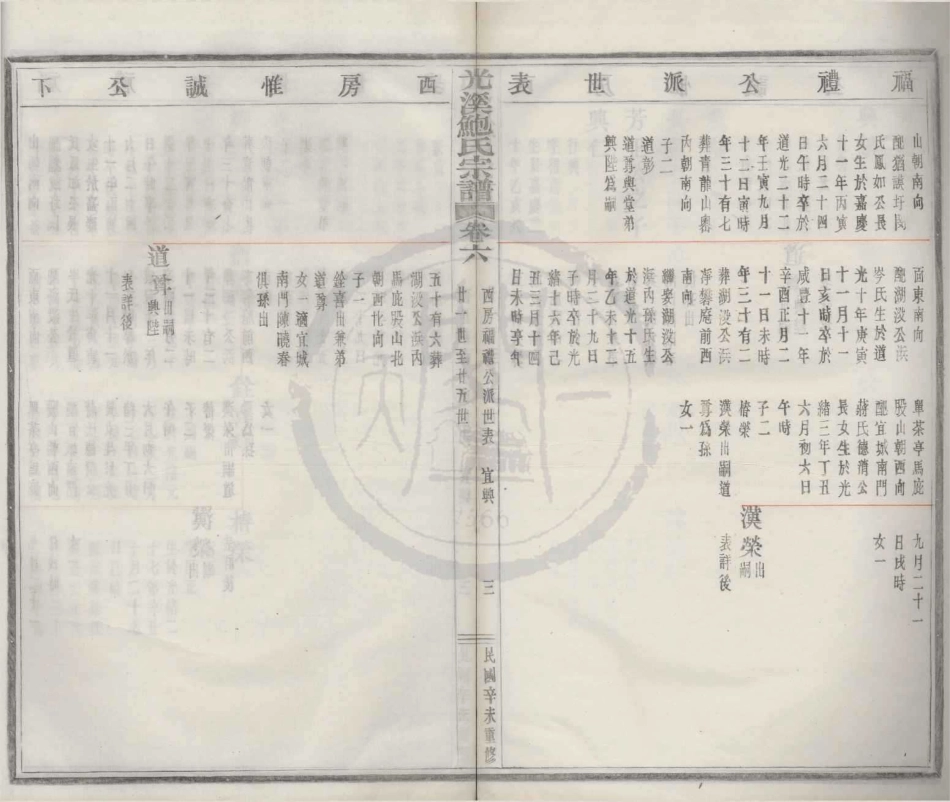 福禮公派世表
山朝南向
配猶談圩閔
氏鳳如公長
女生於嘉慶
十一年丙寅
六月二十四
日午時卒於
道光二十二
年壬寅九月
十二日寅時
年三十有七
葬青龍山㘭
內朝南向
子二
道彰
道尊與堂弟
興陸為嗣
面東南向
配湖㳇公浜
岑氏生於道
光十年庚寅
十一月十一
日亥時卒於
咸豐十一年
辛酉正月二
十一日未時
年三十有二
葬湖㳇公浜
淨髮庵前西
南向
繼娶湖㳇公
浜內孫氏生
於道光十五
年乙未十二
月二十九日
子時卒於光
緒十六年己
丑三月十四
日未時卒年
單茶亭馬鹿
股山朝西向
配宜城南門
蔣氏德清公
長女生於光
緒三年丁丑
六月初六日
午時
子二
榕榮
漢榮出嗣道
尊為孫
女一
九月二十一
日戌時
女一
漢榮出嗣
表詳後
光溪鮑氏宗譜 卷六
西房福禮公派世表 宜興
廿一世至廿五世
三
民國辛未重修
西房惟誠公下
五十有六葬
湖㳇公浜內
馬鹿股山北
朝西北向
子一
銓喜出兼弟
道尊
女一適宜城
南門陳曉春
俱孫出
道尊出嗣興陸
表詳後